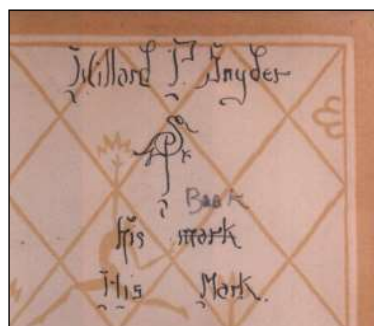 Willard P Snyder
Book
his mark
His Mark.